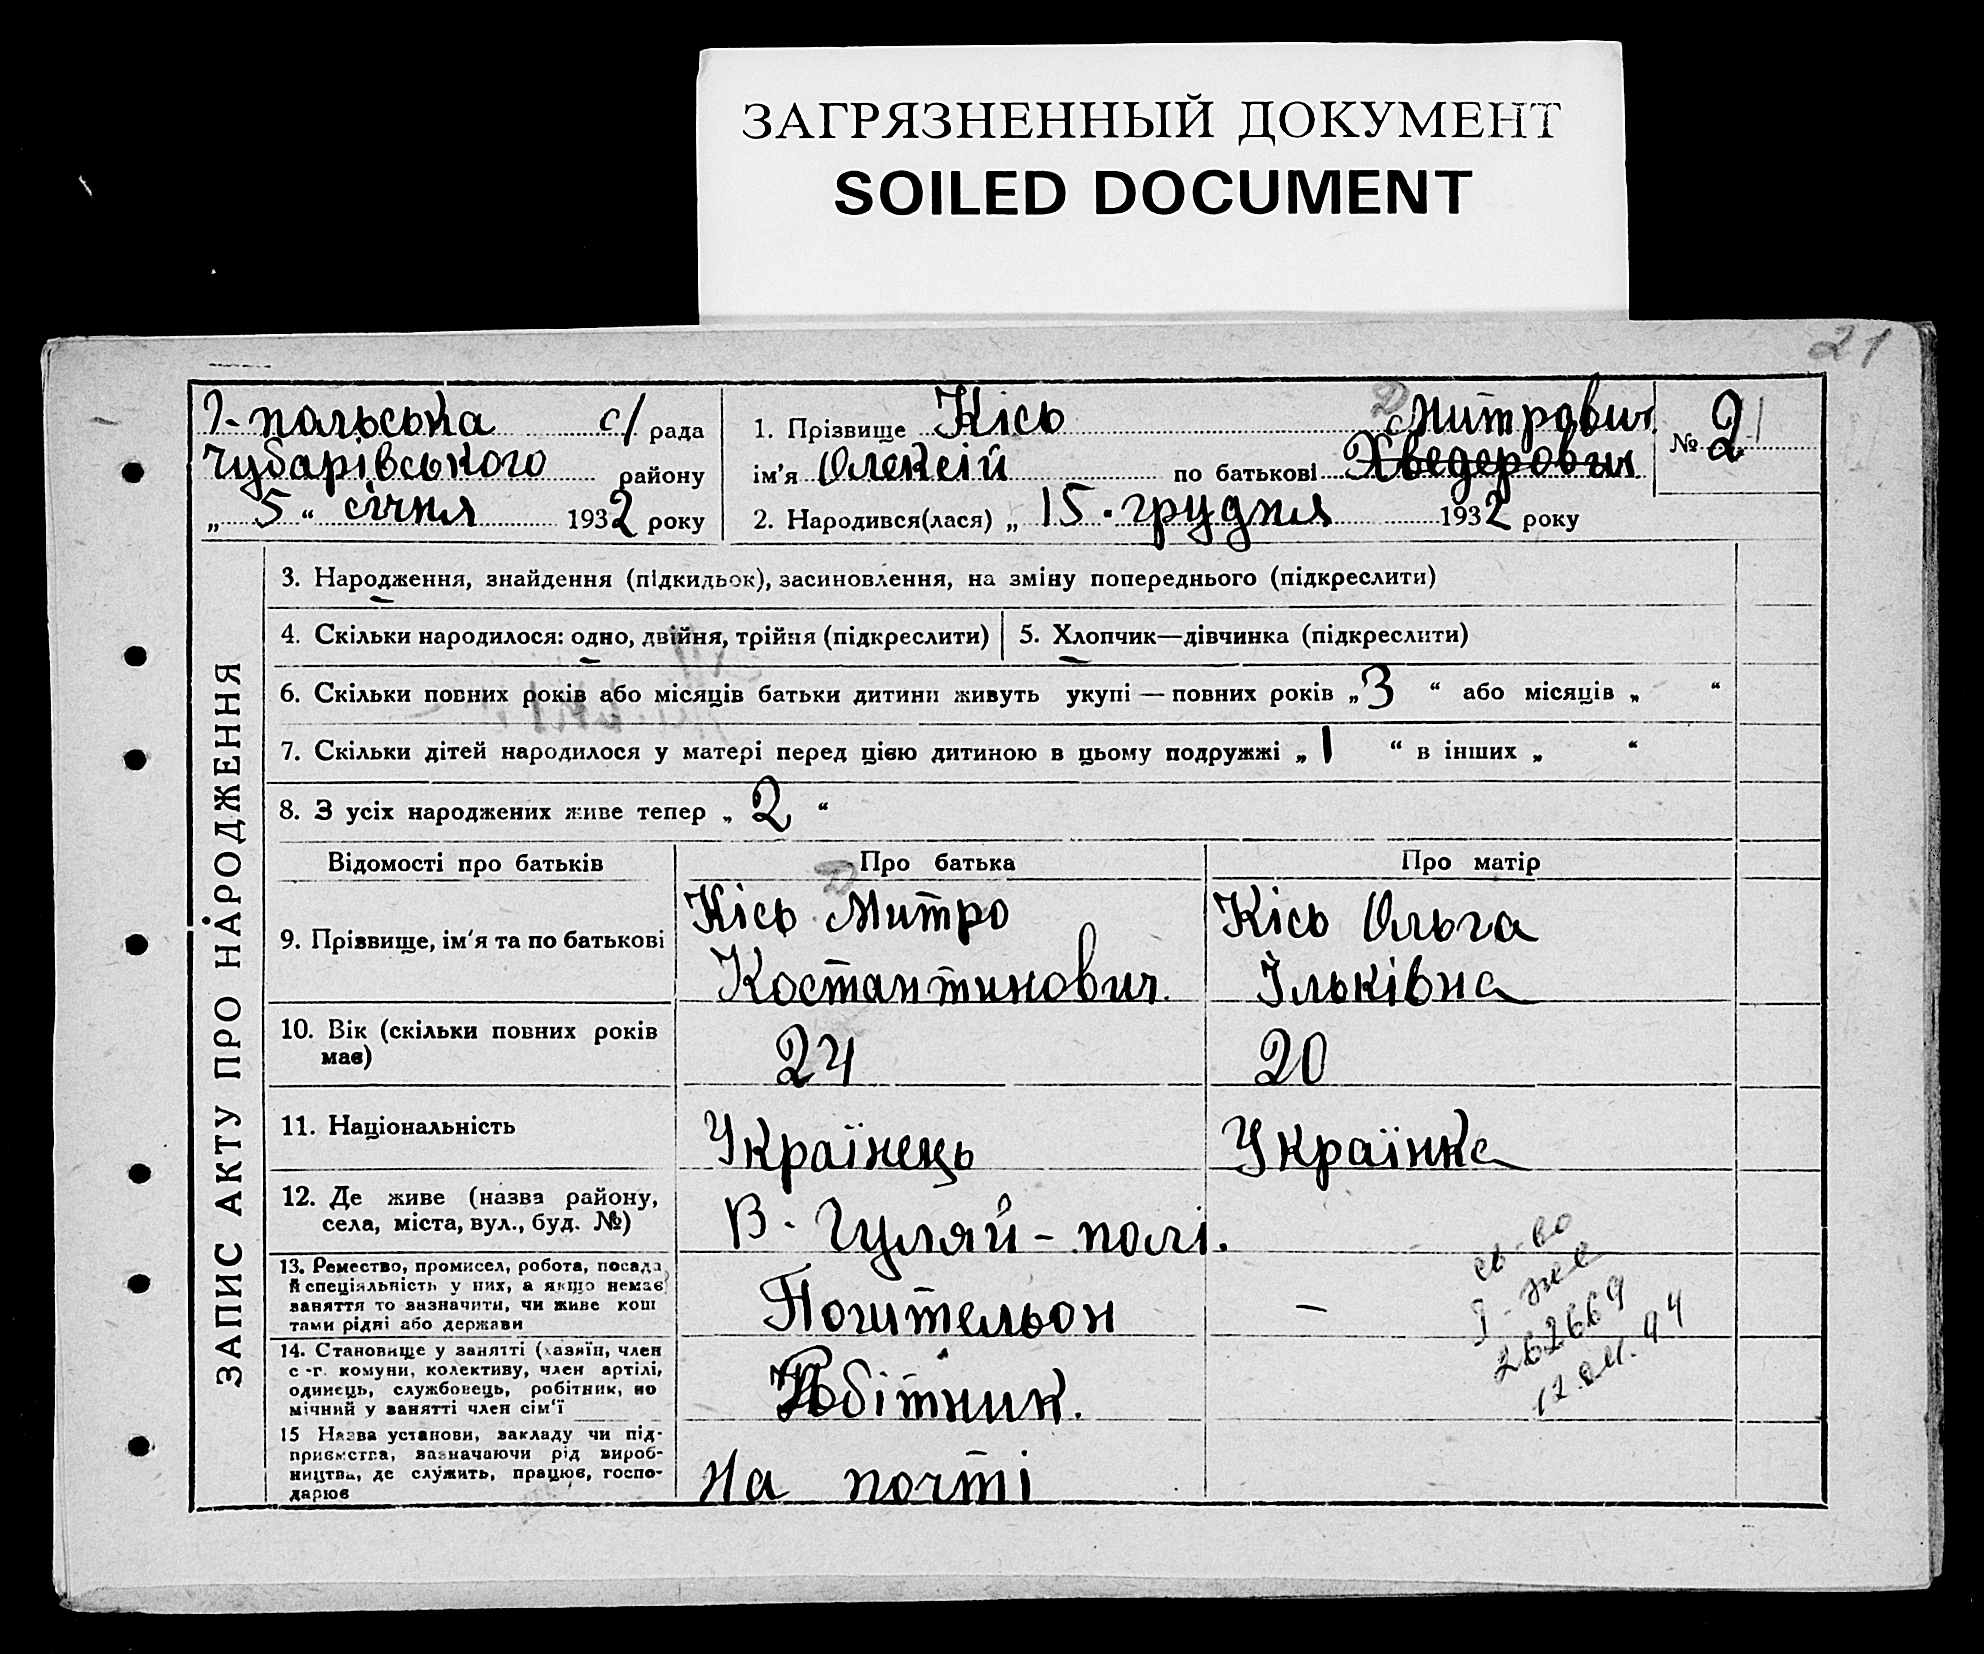 ЗАГРЯЗНЕННЫЙ ДОКУМЕНТ
SOILED DOCUMENT
21
Г-польська с/ рада
Чубарівського району
„ 5 “ січня 1932 року
1. Прізвище Кісь Дмитрович
ім'я Олексій по батькові Хведерович
2. Народився(лася) „ 15 . грудня 1932 року
№ 2
ЗАПИС АКТУ ПРО НАРОДЖЕННЯ
3. Народження, знайдення (підкидьок), засиновлення, на зміну попереднього (підкреслити)
4. Скільки народилося: одно, двійня, трійня (підкреслити)
5. Хлопчик—дівчинка (підкреслити)
6. Скільки повних років або місяців батьки дитини живуть укупі — повних років „ 3 “ або місяців „ “
7. Скільки дітей народилося у матері перед цією дитиною в цьому подружжі „ 1 “ в інших „ “
8. З усіх народжених живе тепер „ 2 “
Відомості про батьків Про батька Про матір
9. Прізвище, ім'я та по батькові
Кісь Дмитро
Костантинович
Кісь Ольга
Ільківна
10. Вік (скільки повних років
має)
24
20
11. Національність
Українець
Українка
12. Де живе (назва району,
села, міста, вул., буд. №)
В - Гуляй-полі.
13. Ремество, промисел, робота, посада
й спеціяльність у них, а якщо немає
заняття то зазначити, чи живе кош
тами рідні або держави
Почительон
—
14. Становище у занятті (хазяїн, член
с-г. комуни, колективу, член артілі,
одинець, службовець, робітник, по
мічний у занятті член сім'ї
Робітник.
15 Назва установи, закладу чи під-
приємства, зазначаючи рід вироб-
ництва, де служить, працює, госпо-
дарює
На почті
св-во
262669